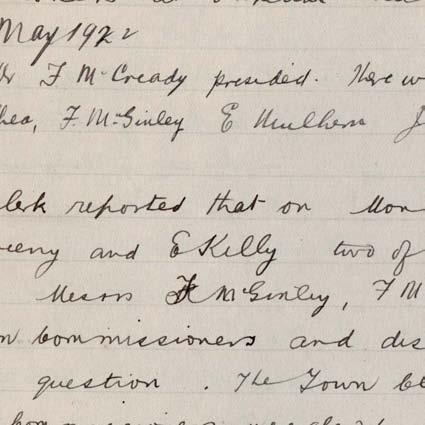 May 1922
Mr F McCready presided. Here w
hea, F. McGinley E Mulhern J
lerk reported that on Mon
and E Kelly two of
Messrs F McGinley, F M
n Commissioners and dis
question. The Town Cl